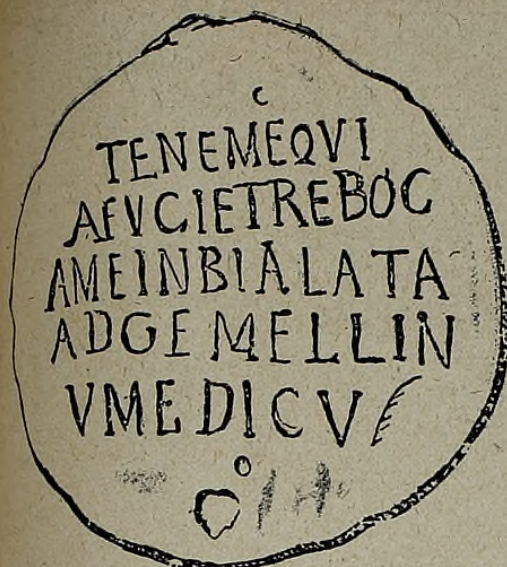 TENEMEQVI
AFVGIETREBOC
AMEINBIALATA
ADGEMELLIN
VMEDICV